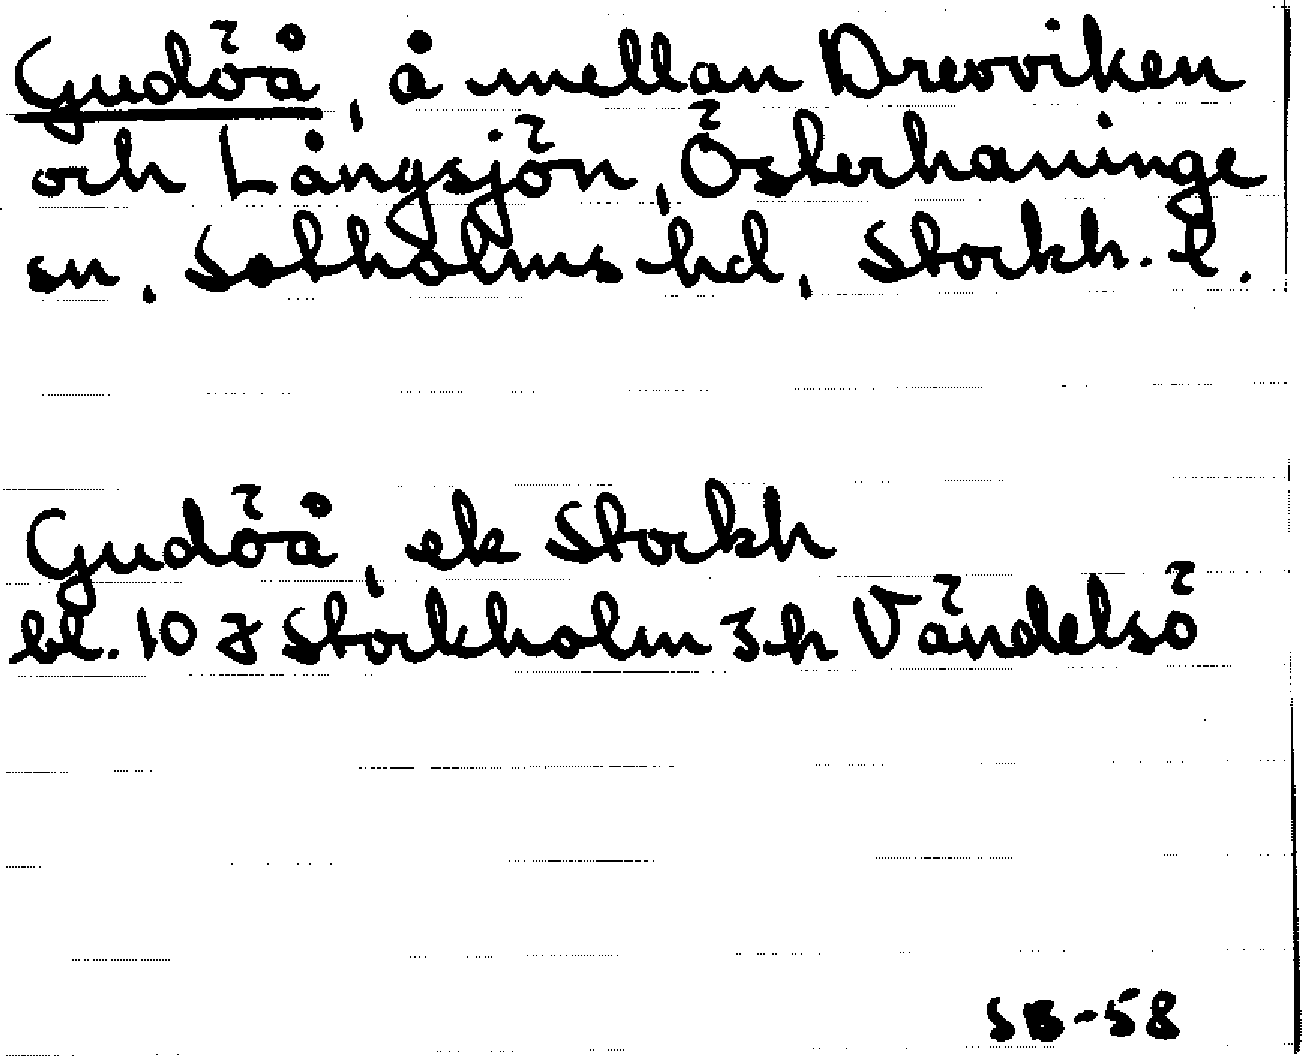 Gudöå, å mellan Drevviken
och Långsjön, Österhaninge
sn, Sotholms hd, Stockh. l.
Gudöå, ek Stockh
bl. 10 J Stockholm 3 h Vändelsö
SB-58